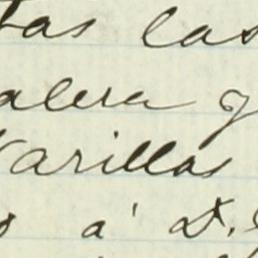 tas las
alera y
Varillas
o á D.